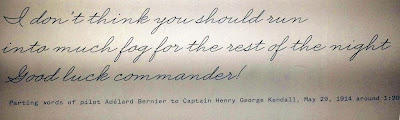 I don't think you should run
into much fog for the rest of the night
Good luck commander!
Parting words of pilot Adélard Bernier to Captain Henry George Kendall, May 29, 1914 around 1:20